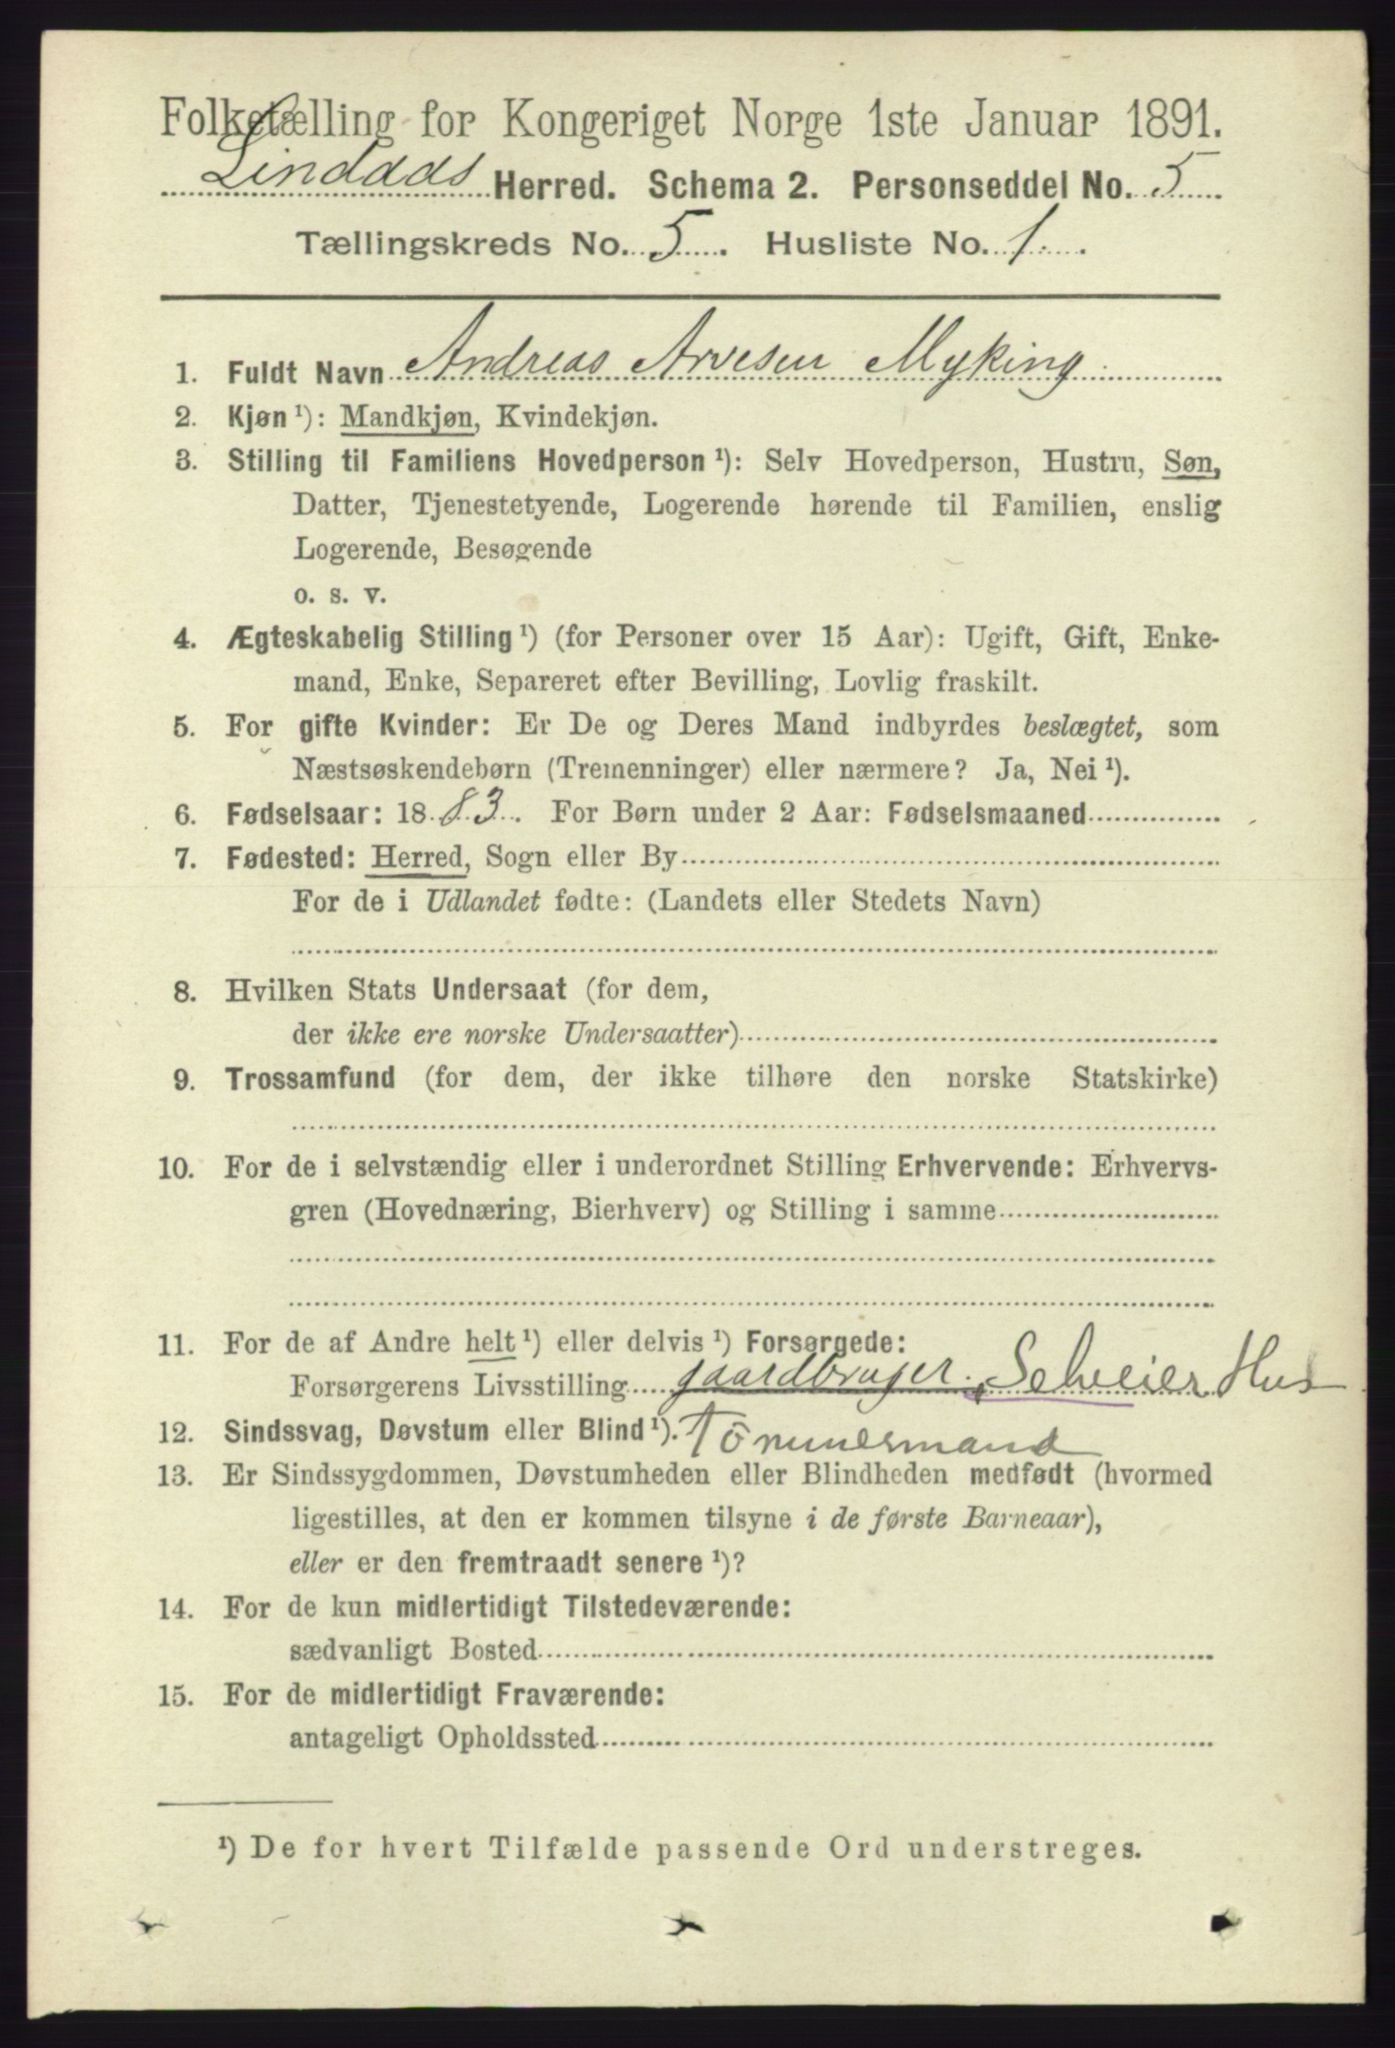 Folketælling for Kongeriget Norge 1ste Januar 1891.
Lindaas Herred. Schema 2. Personseddel No. 5
Tællingskreds No. 5. Husliste No. 1.
1. Fuldt Navn Andreas Arvesen Myking
2. Kjøn ¹): Mandkjøn, Kvindekjøn.
3. Stilling til Familiens Hovedperson ¹): Selv Hovedperson, Hustru, Søn,
Datter, Tjenestetyende, Logerende hørende til Familien, enslig
Logerende, Besøgende
o. s. v.
4. Ægteskabelig Stilling ¹) (for Personer over 15 Aar): Ugift, Gift, Enke-
mand, Enke, Separeret efter Bevilling, Lovlig fraskilt.
5. For gifte Kvinder: Er De og Deres Mand indbyrdes beslægtet, som
Næstsøskendebørn (Tremenninger) eller nærmere? Ja, Nei ¹).
6. Fødselsaar: 1883. For Børn under 2 Aar: Fødselsmaaned
7. Fødested: Herred, Sogn eller By
For de i Udlandet fødte: (Landets eller Stedets Navn)
8. Hvilken Stats Undersaat (for dem,
der ikke ere norske Undersaatter)
9. Trossamfund (for dem, der ikke tilhøre den norske Statskirke)
10. For de i selvstændig eller i underordnet Stilling Erhvervende: Erhvervs-
gren (Hovednæring, Bierhverv) og Stilling i samme
11. For de af Andre helt ¹) eller delvis ¹) Forsørgede:
Forsørgerens Livsstilling gaardbruger, Selveier Hus
12. Sindssvag, Døvstum eller Blind ¹). Tömmermand
13. Er Sindssygdommen, Døvstumheden eller Blindheden medfødt (hvormed
ligestilles, at den er kommen tilsyne i de første Barneaar),
eller er den fremtraadt senere ¹)?
14. For de kun midlertidigt Tilstedeværende:
sædvanligt Bosted
15. For de midlertidigt Fraværende:
antageligt Opholdssted
¹) De for hvert Tilfælde passende Ord understreges.